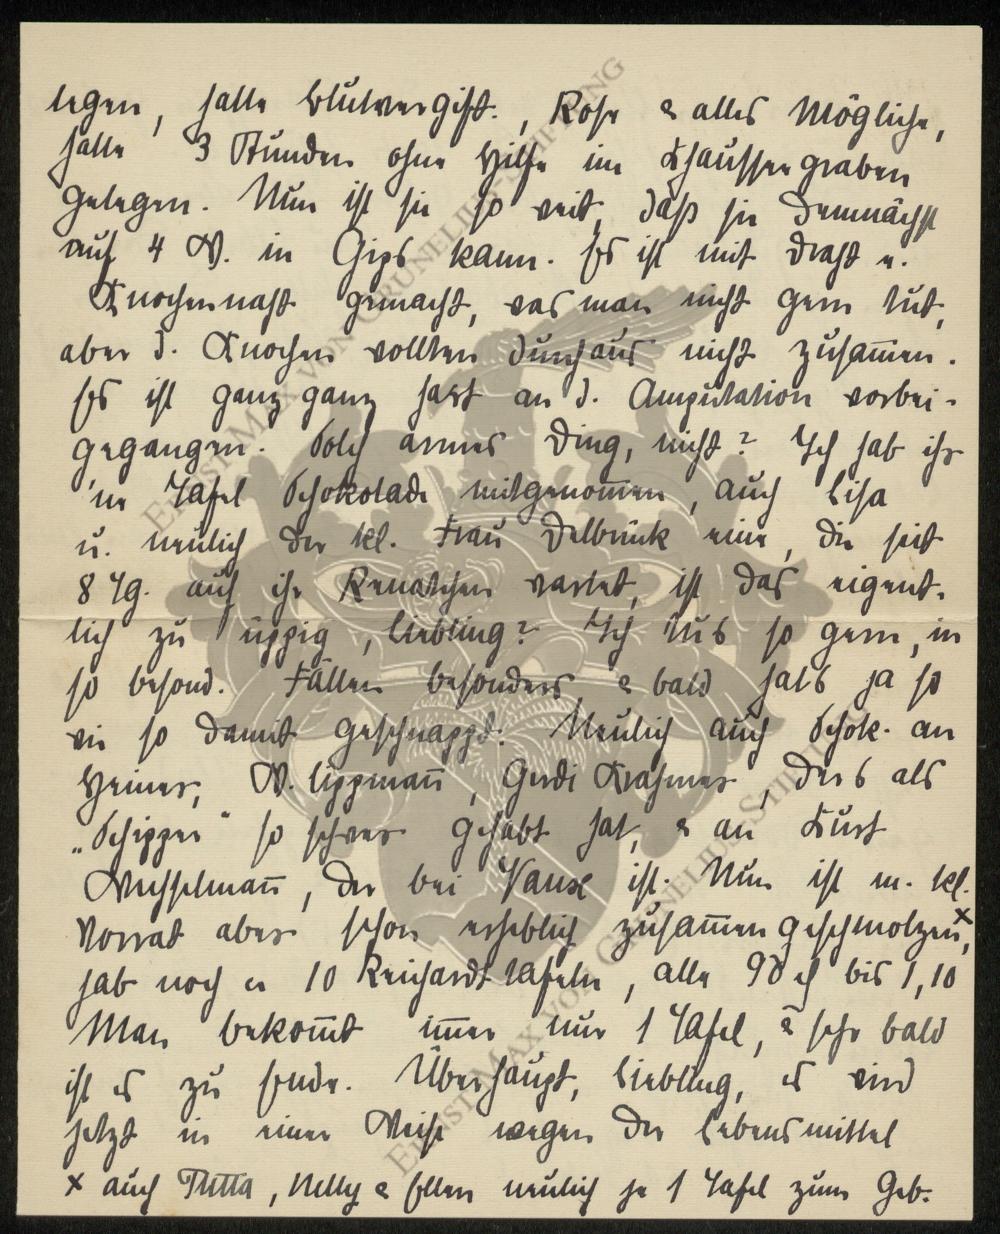 legen, hatte Blutvergift., Rose & alles Mögliche,
hatte 3 Stunden ohne Hilfe im Chausseegraben
gelegen. Nun ist sie so weit, daß sie demnächst
auf 4 W. in Gips kann. Es ist mit Draht u.
Knochennaht gemacht, was man nicht gern tut,
aber d. Knochen wollten durchaus nicht zusam̅en.
Es ist ganz ganz hart an d. Amputation vorbei-
gegangen. Solch armes Ding, nicht? Ich hab ihr
'ne Tafel Schokolade mitgenom̅en, auch Lisa
u. neulich der kl. Frau Delbrück eine, die seit
8 Tg. auf ihr Renatchen wartet, ist das eigent-
lich zu üppig, Liebling? Ich tu's so gern, in
so besond. Fällen besonders, & bald hat's ja so
wie so damit geschnappt. Neulich auch Schok. an
Heiner, W. Lippman̅, Gerdi Krahmer, der's als
„Schipper" so schwer gehabt hat, & an Kurt
Wesselman̅, der bei Vaux ist. Nun ist m. kl.
Vorrat aber schon erheblich zusam̅engeschmolzen,ˣ
hab noch ca 10 Reichardttafeln, alle 90 ₰ bis 1,10
Man bekom̅t im̅er nur 1 Tafel, & sehr bald
ist es zu Ende. Überhaupt, Liebling, es wird
jetzt in einer Weise wegen der Lebensmittel
x auch Tutta, Nelly & Ellen neulich je 1 Tafel zum Geb.
ERNST MAX VON GRUNELIUS-STIFTUNG
ERNST MAX VON GRUNELIUS-STIFTUNG